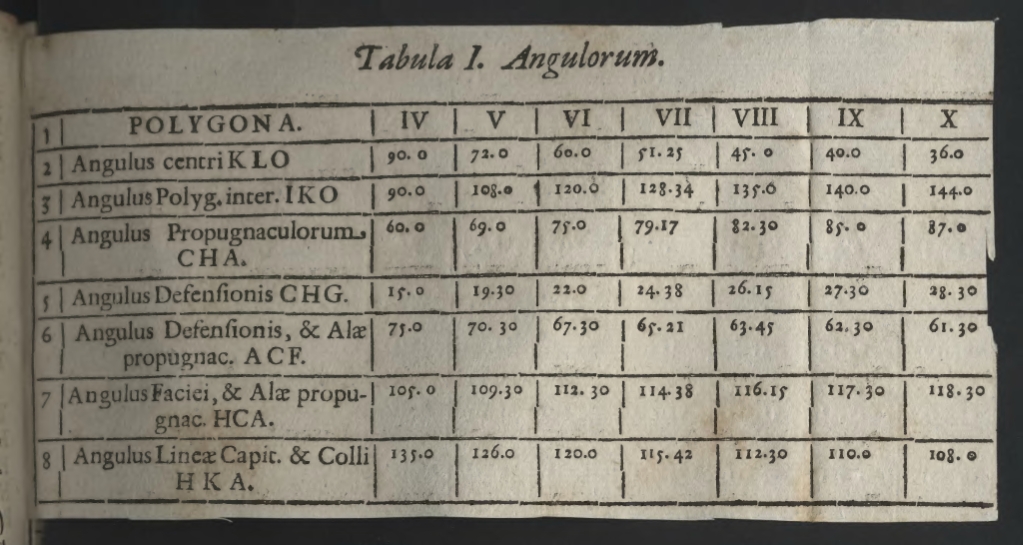 Tabula I. Angulorum.
1 | POLYGONA. | IV | V | VI | VII | VIII | IX | X
2 | Angulus centri KLO | 90. 0 | 72. 0 | 60. 0 | 51. 25 | 45. 0 | 40.0 | 36.0
3 | Angulus Polyg. inter. IKO | 90. 0 | 108.0 | 120.0 | 128.34 | 135.0 | 140.0 | 144.0
4 | Angulus Propugnaculorum | 60. 0 | 69. 0 | 75.0 | 79.17 | 82. 30 | 85. 0 | 87. 0
CHA.
5 | Angulus Defensionis CHG. | 15. 0 | 19.30 | 22.0 | 24. 38 | 26. 15 | 27.30 | 28. 30
6 | Angulus Defensionis, & Alæ | 75.0 | 70. 30 | 67.30 | 65. 21 | 63.45 | 62. 30 | 61. 30
propugnac. ACF.
7 | Angulus Faciei, & Alæ propu- | 105. 0 | 109.30 | 112. 30 | 114.38 | 116.15 | 117. 30 | 118. 30
gnac. HCA.
8 | Angulus Lineæ Capit. & Colli | 135.0 | 126.0 | 120.0 | 115. 42 | 112.30 | 110.0 | 108. 0
HKA.